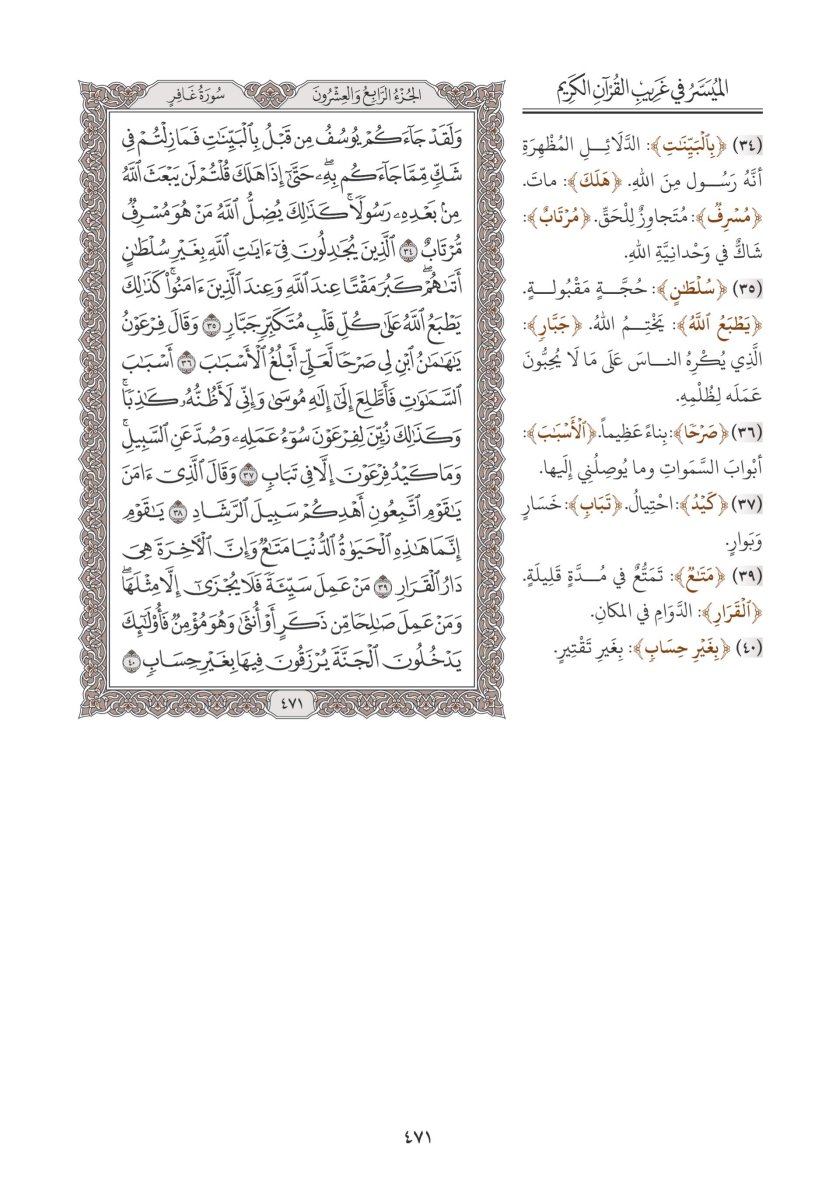 الميسر في غريب القرآن الكريم
(٣٤) ﴿بِٱلۡبَيِّنَٰتِ﴾: الدَّلَائِلِ المُظْهِرَةِ
أنَّهُ رَسُول مِنَ اللهِ. ﴿هَلَكَ﴾: ماتَ.
﴿مُسۡرِفٞ﴾: مُتَجاوِزٌ لِلْحَقِّ. ﴿مُّرۡتَابٌ﴾:
شَاكٌّ في وَحْدانِيَّةِ اللهِ.
(٣٥) ﴿سُلۡطَٰنٍ﴾: حُجَّةٍ مَقْبُولةٍ.
﴿يَطۡبَعُ ٱللَّهُ﴾: يَخْتِمُ اللهُ. ﴿جَبَّارٖ﴾:
الَّذِي يُكْرِهُ الناسَ عَلَى مَا لَا يُحِبُّونَ
عَمَلَه لِظُلْمِهِ.
(٣٦) ﴿صَرۡحٗا﴾: بِناءً عَظِيماً. ﴿ٱلۡأَسۡبَٰبَ﴾:
أبْوابَ السَّمَواتِ وما يُوصِلُنِي إلَيها.
(٣٧) ﴿كَيۡدُ﴾: احْتِيالُ. ﴿تَبَابٖ﴾: خَسَارٍ
وَبَوارٍ.
(٣٩) ﴿مَتَٰعٞ﴾: تَمَتُّعٌ في مُدَّةٍ قَلِيلَةٍ.
﴿ٱلۡقَرَارِ﴾: الدَّوَامِ في المكانِ.
(٤٠) ﴿بِغَيۡرِ حِسَابٖ﴾: بِغَيرِ تَقْتِيرٍ.
الجزء الرابع والعشرون سورة غافر
وَلَقَدۡ جَآءَكُمۡ يُوسُفُ مِن قَبۡلُ بِٱلۡبَيِّنَٰتِ فَمَا زِلۡتُمۡ فِي
شَكّٖ مِّمَّا جَآءَكُم بِهِۦۖ حَتَّىٰٓ إِذَا هَلَكَ قُلۡتُمۡ لَن يَبۡعَثَ ٱللَّهُ
مِنۢ بَعۡدِهِۦ رَسُولٗاۚ كَذَٰلِكَ يُضِلُّ ٱللَّهُ مَنۡ هُوَ مُسۡرِفٞ
مُّرۡتَابٌ ٣٤ ٱلَّذِينَ يُجَٰدِلُونَ فِيٓ ءَايَٰتِ ٱللَّهِ بِغَيۡرِ سُلۡطَٰنٍ
أَتَىٰهُمۡۖ كَبُرَ مَقۡتًا عِندَ ٱللَّهِ وَعِندَ ٱلَّذِينَ ءَامَنُواْۚ كَذَٰلِكَ
يَطۡبَعُ ٱللَّهُ عَلَىٰ كُلِّ قَلۡبِ مُتَكَبِّرٖ جَبَّارٖ ٣٥ وَقَالَ فِرۡعَوۡنُ
يَٰهَٰمَٰنُ ٱبۡنِ لِي صَرۡحٗا لَّعَلِّيٓ أَبۡلُغُ ٱلۡأَسۡبَٰبَ ٣٦ أَسۡبَٰبَ
ٱلسَّمَٰوَٰتِ فَأَطَّلِعَ إِلَىٰٓ إِلَٰهِ مُوسَىٰ وَإِنِّي لَأَظُنُّهُۥ كَٰذِبٗاۚ
وَكَذَٰلِكَ زُيِّنَ لِفِرۡعَوۡنَ سُوٓءُ عَمَلِهِۦ وَصُدَّ عَنِ ٱلسَّبِيلِۚ
وَمَا كَيۡدُ فِرۡعَوۡنَ إِلَّا فِي تَبَابٖ ٣٧ وَقَالَ ٱلَّذِيٓ ءَامَنَ
يَٰقَوۡمِ ٱتَّبِعُونِ أَهۡدِكُمۡ سَبِيلَ ٱلرَّشَادِ ٣٨ يَٰقَوۡمِ
إِنَّمَا هَٰذِهِ ٱلۡحَيَوٰةُ ٱلدُّنۡيَا مَتَٰعٞ وَإِنَّ ٱلۡأٓخِرَةَ هِيَ
دَارُ ٱلۡقَرَارِ ٣٩ مَنۡ عَمِلَ سَيِّئَةٗ فَلَا يُجۡزَىٰٓ إِلَّا مِثۡلَهَاۖ
وَمَنۡ عَمِلَ صَٰلِحٗا مِّن ذَكَرٍ أَوۡ أُنثَىٰ وَهُوَ مُؤۡمِنٞ فَأُوْلَٰٓئِكَ
يَدۡخُلُونَ ٱلۡجَنَّةَ يُرۡزَقُونَ فِيهَا بِغَيۡرِ حِسَابٖ ٤٠
٤٧١
٤٧١